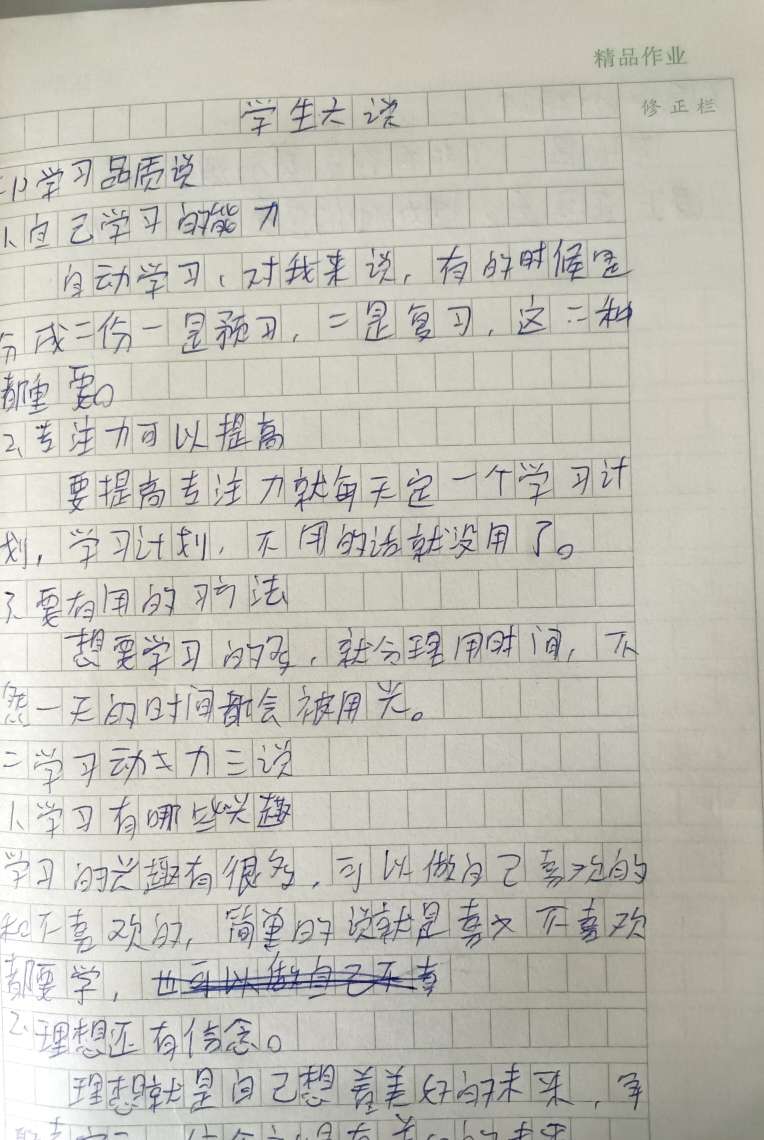 精品作业
修正栏
学生六说
学习品质说
1、自己学习的能力
自动学习、对我来说，有的时候是
分成二份一是预习，二是复习，这二种
都重要。
2、专注力可以提高
要提高专注力就每天定一个学习计
划，学习计划，不用的话就没用了。
3、要有用的习方法
想要学习的好，就合理用时间，不
然一天的时间都会被用光。
二学习动力三说
1、学习有哪些兴趣
学习的兴趣有很多，可以做自己喜欢的
和不喜欢的，简单的说就是喜欢不喜欢
都要学，
2、理想还有信念。
理想就是自己想美好的未来，